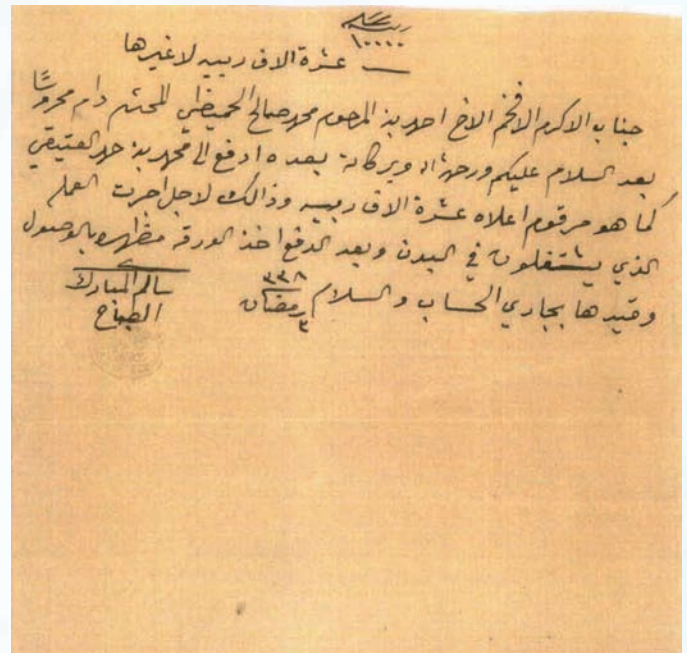 ربيه
١٠٠٠٠
عشرة الاف ربيه لا غيرها
جناب الاكرم الافخم الاخ احمد بن المرحوم محمد صالح الحميضي المحترم دام محروسًا
بعد السلام عليكم ورحمة الله وبركاته بعده ادفع الى محمد بن حمد العتيقي
كما هو مرقوم اعلاه عشرة الاف ربيه وذالك لاجل اجرت العمله
الذي يشتغلون في البدن وبعد الدفع اخذ الورقه مظهره بالوصول
وقيدها بجاري الحساب والسلام ٣ رمضان ٣٣٨
سالم المبارك
الصباح